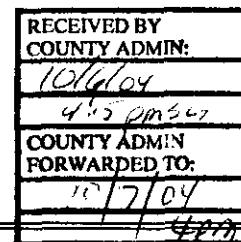 RECEIVED BY
COUNTY ADMIN:
10/6/04
4:15 pm
COUNTY ADMIN
FORWARDED TO:
10/7/04
4pm